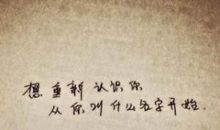 想重新认识你
从你叫什么名字开始.